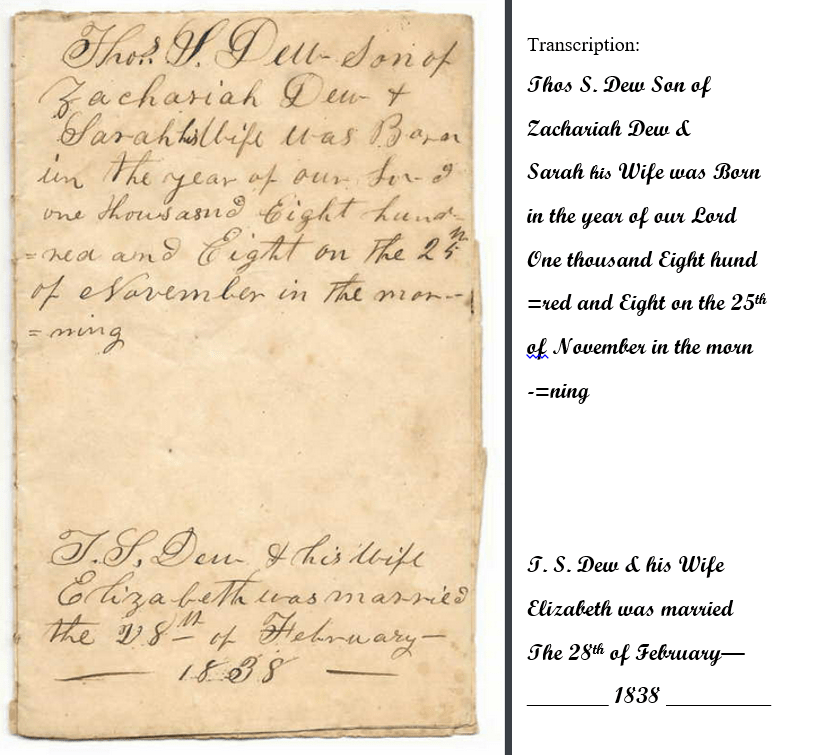 Thos. S. Dew Son of
Zachariah Dew &
Sarah his Wife was Born
in the year of our Lord
one thousand Eight hund=
=red and Eight on the 25th
of November in the mor--
=ning
T. S. Dew & his Wife
Elizabeth was married
the 28th of February—
— 1838 —
Transcription:
Thos S. Dew Son of
Zachariah Dew &
Sarah his Wife was Born
in the year of our Lord
One thousand Eight hund
=red and Eight on the 25th
of November in the morn
-=ning
T. S. Dew & his Wife
Elizabeth was married
The 28th of February—
________ 1838 __________